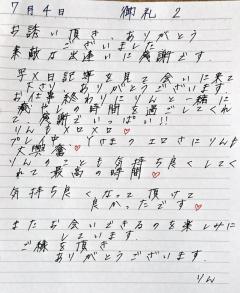 7月4日 御礼 2
お誘い頂き、ありがとう
ございました
素敵な出逢いに感謝です。
写メ日記等を見て会いに来て
下さり、ありがとうございます
お仕事終わりにりんと一緒に
の時間を過ごしてくれ
て、感謝でいっぱい!!
りんもメロメロ♡
プレ Yさまのエロさにりんも
大興奮♡
りんのことも気持ち良くしてく
れて最高の時間♡
気持ち良くなって頂けて
良かったです♡
またお会いできるのを楽しみに
しています。
ご縁を頂き
ありがとうございます。
りん